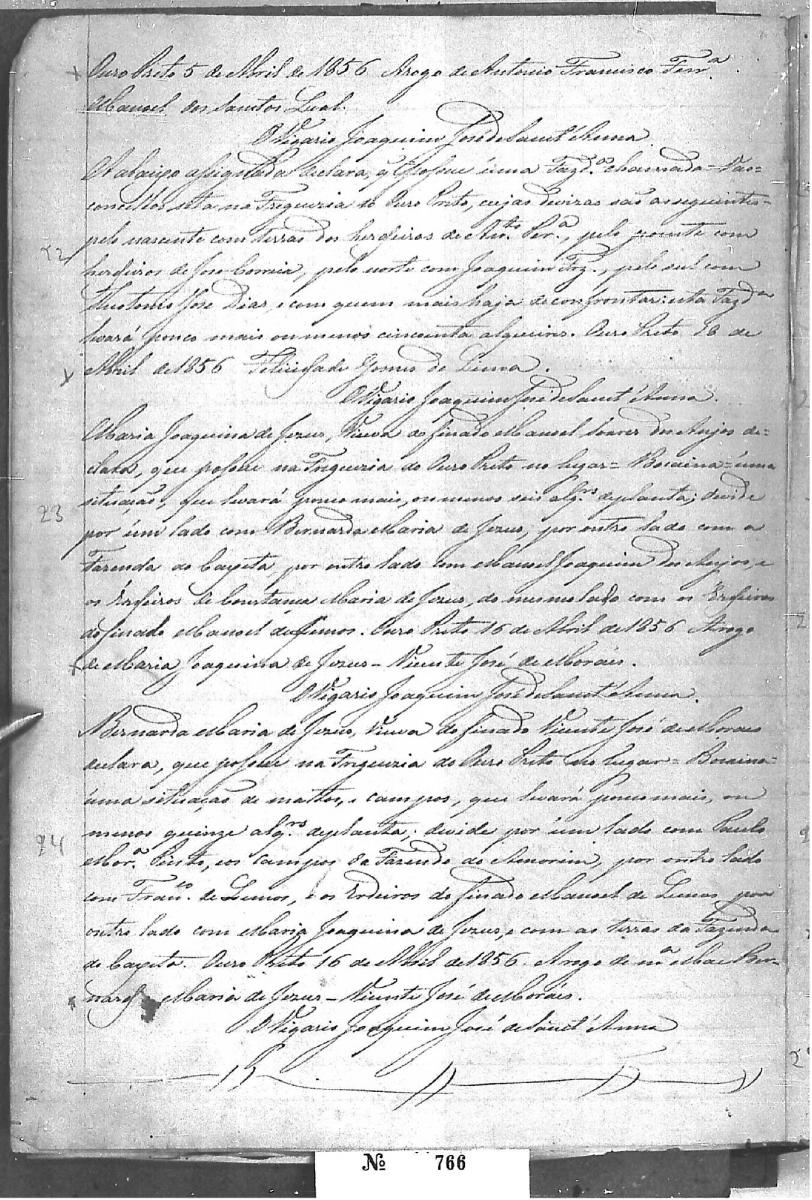 Ouro Preto 5 de Abril de 1856 Arogo de Antonio Francisco Ferr.ª
Manoel dos Santos Leal.
O Vigario Joaquim José de Sant'Anna
O abaixo assignada declara, q̃ possue úma Fazd.ª chamada = Vas-
concellos sita na Freguezia do Ouro Preto, cujas divizas são as seguintes =
22
pelo nascente com terras dos herdeiros de Ant.º Per.ª, pelo poente com
herdeiros de Jose Correia, pelo norte com Joaquim Frz., pelo sul com
Antonio José Dias, e com quem mais haja de confrontar: esta Fazd.ª
levará pouco mais ou menos cincoenta alqueires. Ouro Preto, 16 de
Abril de 1856 Felicissade Gomes de Lima.
O Vigario Joaquim José de Sant'Anna.
Maria Joaquina de Jezus, Viuva do finado Manoel Soares dos Anjos de-
clara, que possue na Freguezia do Ouro Preto no lugar = Bocaina = úma
situação, que levará pouco mais, ou menos seis alqr.s de planta; devide
23
por úm lado com Bernarda Maria de Jezus, por outro lado com a
Fazenda do Cayeta por outro lado com Manoel Joaquim dos Anjos, e
os Erdeiros de Constança Maria de Jezus, do mesmo lado com os Erdeiros
do finado Manoel de Lemos. Ouro Preto 16 de Abril de 1856 Arogo
de Maria Joaquina de Jezus = Vicente José de Moráes.
O Vigario Joaquim José de Sant'Anna.
Bernarda Maria de Jezus, Viuva do finado Vicente José de Moraes
declara, que possue na Freguezia do Ouro Preto no lugar = Bocaina =
úma situação de mattos, e campos, que levará pouco mais, ou
menos quinze alqr.s de planta: devide por úm lado com Paulo
24
Mor.ª Pinto, e os campos da Fazenda do Amorim, por outro lado
com Fran.co de Lemos, e os Erdeiros do finado Manoel de Lemos, por
outro lado com Maria Joaquina de Jezus, e com as terras da Fazenda
do Cayeta. Ouro Preto 16 de Abril de 1856. Arogo de m.ª Mae Ber-
narda Maria de Jezus = Vicente José de Moráes.
O Vigario Joaquim José de Sant'Anna
Nº 766